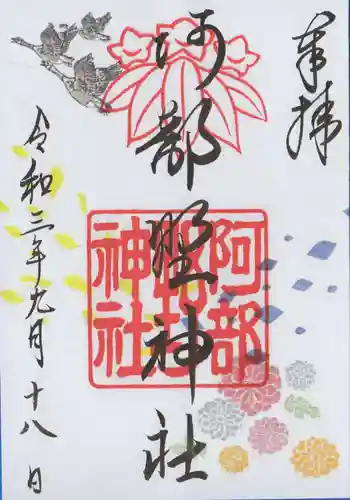 奉拝
阿部野神社
令和三年九月十八日
阿部
野
神社